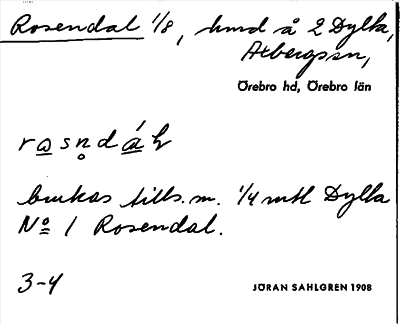 Rosendal 1/8, hmd å 2 Dylta,
Axbergssn,
Örebro hd, Örebro län
rosndáh
brukas tills. m. 1/4 mtl Dylta
No 1 Rosendal.
3-4
JÖRAN SAHLGREN 1908